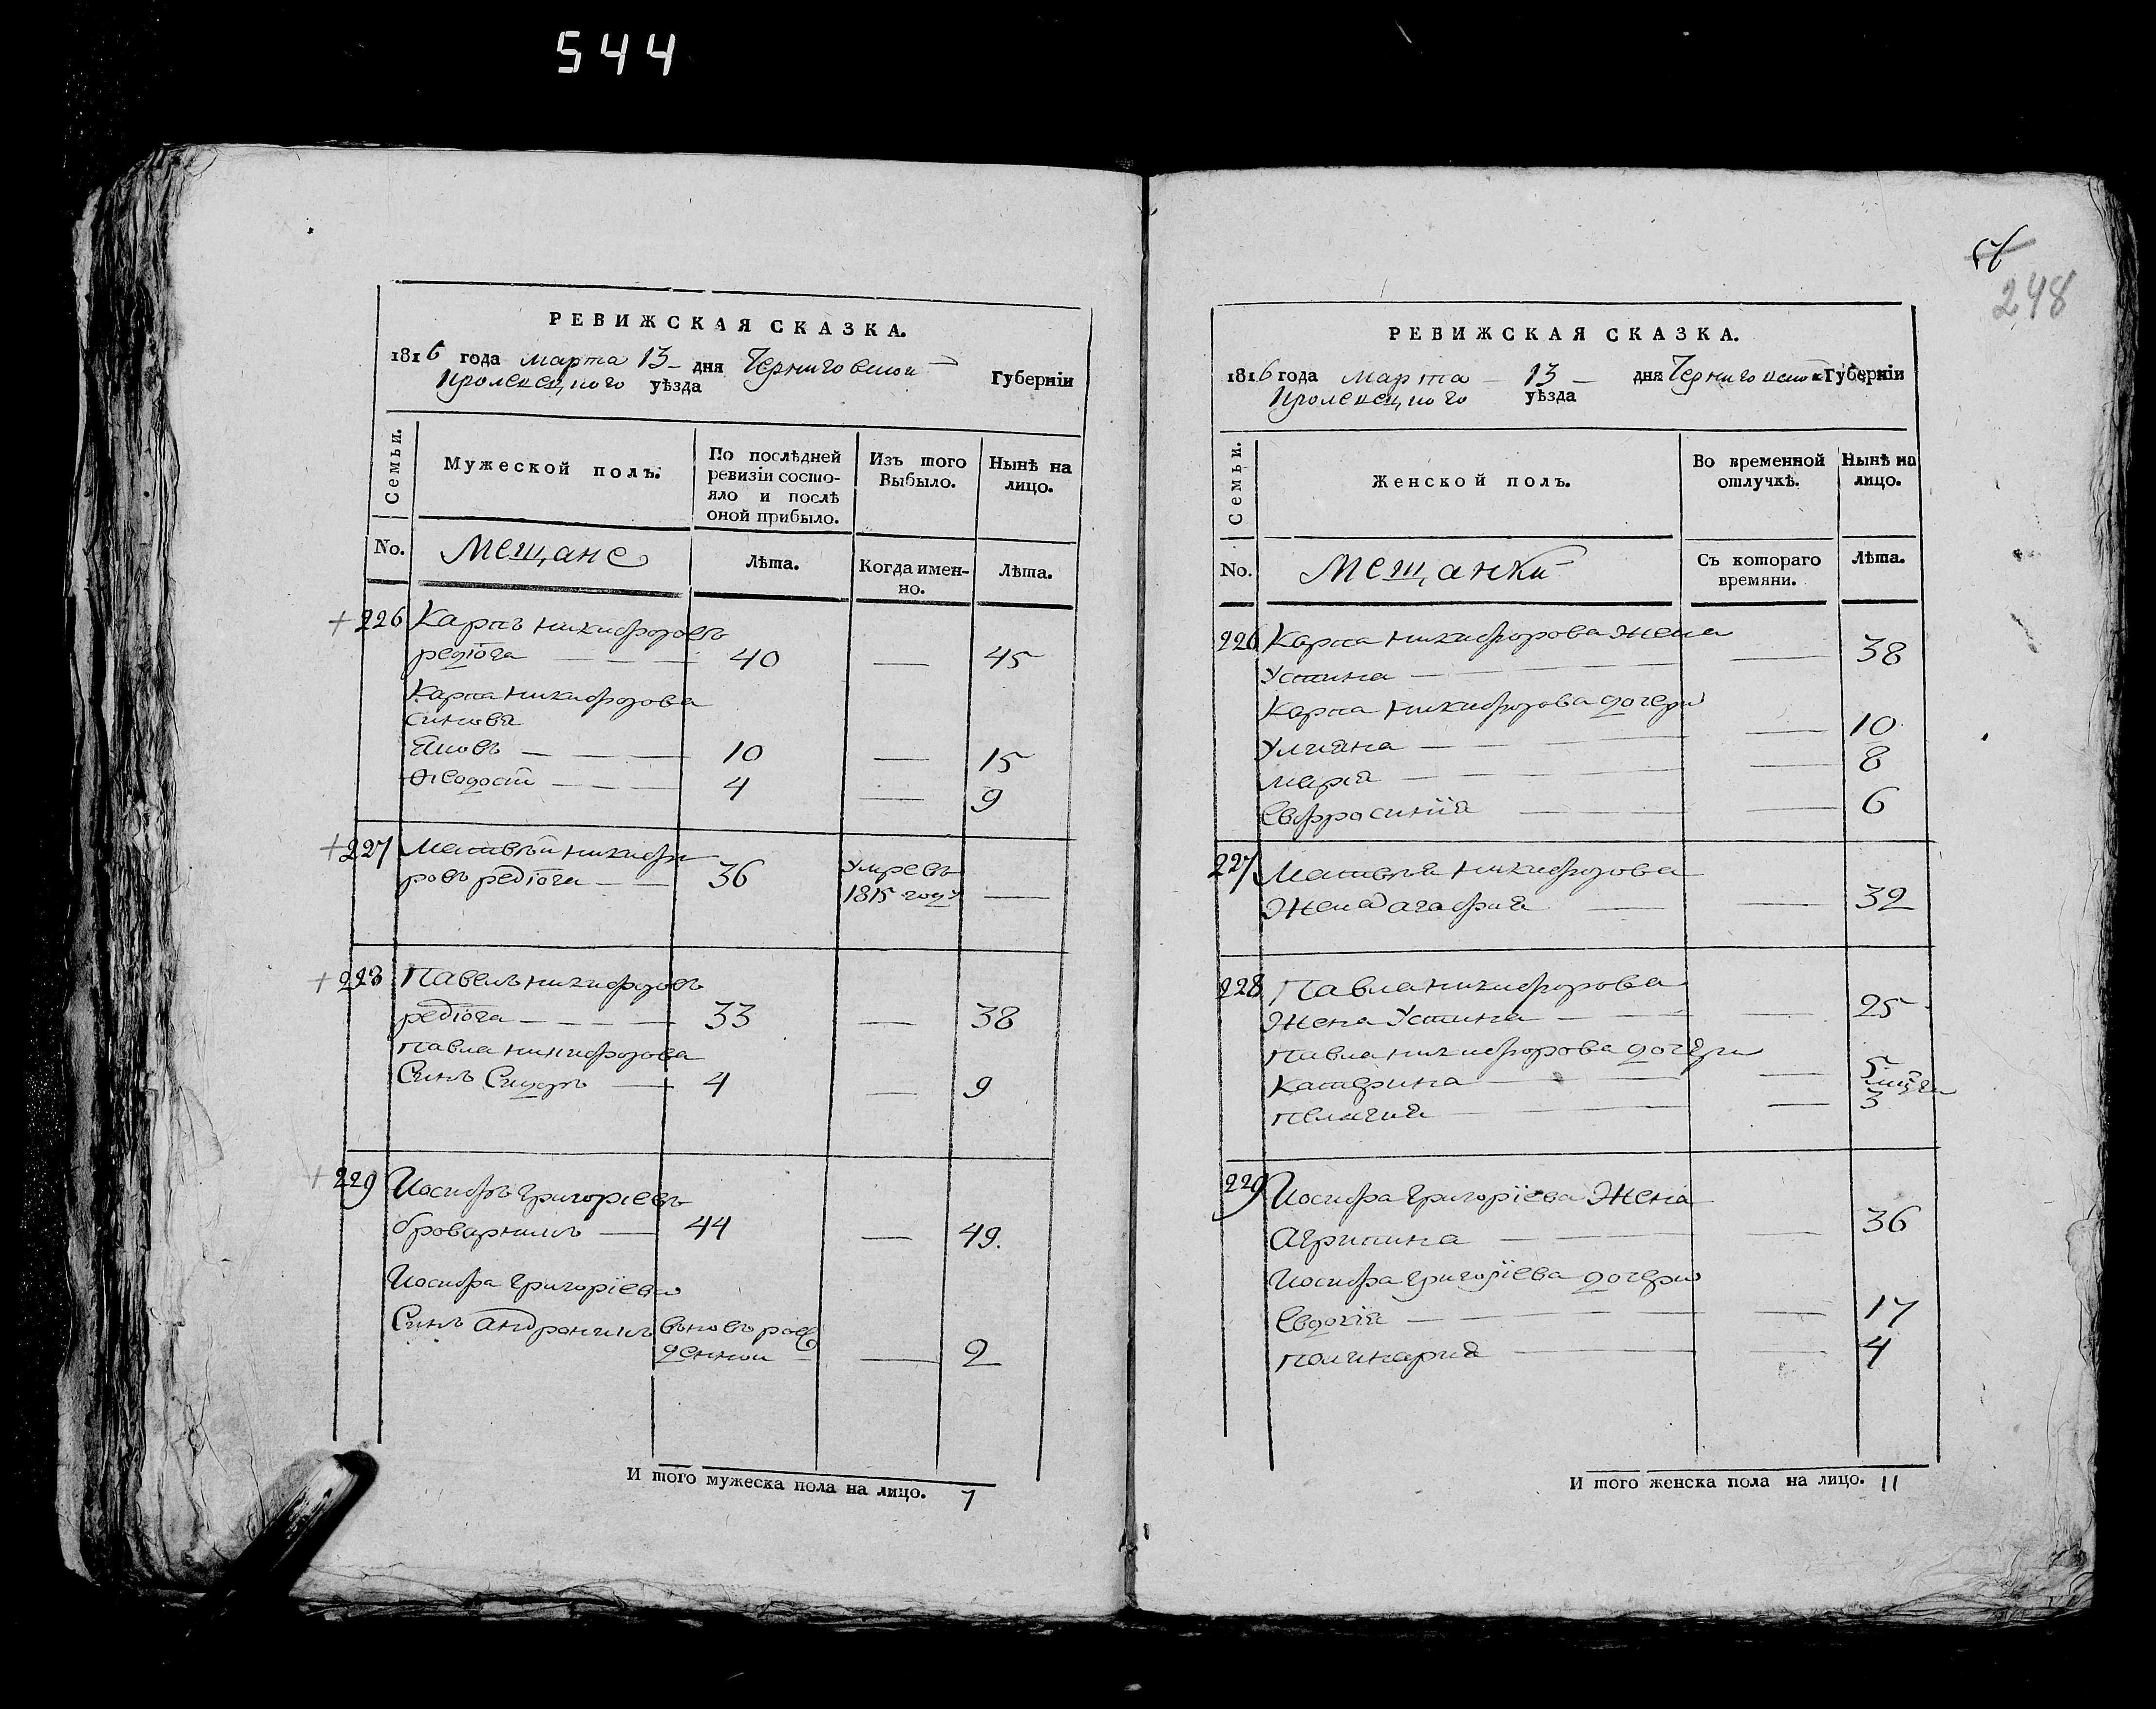 544
РЕВИЖСКАЯ СКАЗКА.
1816 года марта 13 дня Черниговской Губерніи
Кролевецкого уѣзда
Семьи.
Мужеской полъ.
По послѣдней ревизіи состояло и послѣ оной прибыло.
Изъ того Выбыло.
Нынѣ на лицо.
No.
Мещане
Лѣта.
Когда именно.
Лѣта.
226 Карпъ никифоровъ
редюга 40 45
Карпа никифорова
синовя
Яковъ 10 15
Ѳеодосій 4 9
227 Матвѣй никифо
ровъ редюга 36 умре въ
1815 году
228 Павелъ никифоровъ
редюга 33 38
павла никифорова
Синъ Сидоръ 4 9
229 Иосифъ григоріевъ
броварникъ 44 49.
Иосифа григоріева
Синъ андроникъ вновь рож
денной 2
И того мужеска пола на лицо. 7
248
РЕВИЖСКАЯ СКАЗКА.
1816 года марта 13 дня Черниговской Губерніи
Кролевецкого уѣзда
Семьи.
Женской полъ.
Во временной отлучкѣ.
Нынѣ на лицо.
No.
Мещанки
Съ котораго времяни.
Лѣта.
226 Карпа никифорова жена
Устина 38
Карпа никифорова дочери
Улияна 10
марія 8
Евфросинія 6
227 Матвѣя никифорова
Жена агафия 32
228 Павла никифорова
Жена Устина 25
Павла никифорова дочери
Катерина 5
пелагия 3
229 Иосифа григоріева Жена
Агрипина 36
Иосифа григоріева дочери
Евдокія 17
полинария 4
И того женска пола на лицо. 11